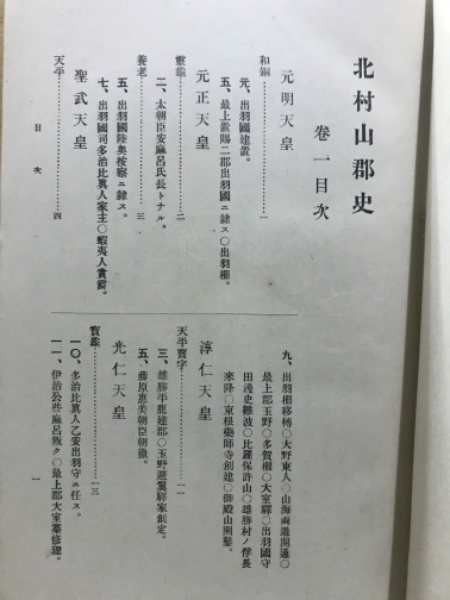 北村山郡史
卷一目次
元明天皇
和銅……………………一
元、出羽國建置。
五、最上置賜二郡出羽國ニ隷ス〇出羽柵。
元正天皇
靈龜……………………二
二、太朝臣安麻呂氏長トナル。
養老……………………三
五、出羽國陸奥按察ニ隷ス。
七、出羽國司多治比眞人家主〇蝦夷人賞爵。
聖武天皇
天平……………………四
九、出羽柵移轉〇大野東人〇山海兩道開通〇
最上郡玉野〇多賀柵〇大室驛〇出羽國守
田邊史難波〇比羅保許山〇雄勝村ノ俘長
來降〇東根藥師寺創建〇御殿山開鑿。
淳仁天皇
天平寳字……………………一一
三、雄勝平鹿建郡〇玉野避翼驛家創定。
五、藤原惠美朝臣朝獵。
光仁天皇
寳龜……………………一三
一〇、多治比眞人乙安出羽守ニ任ス。
一一、伊治公呰麻呂叛ク〇最上郡大室塞修理。
目次
一